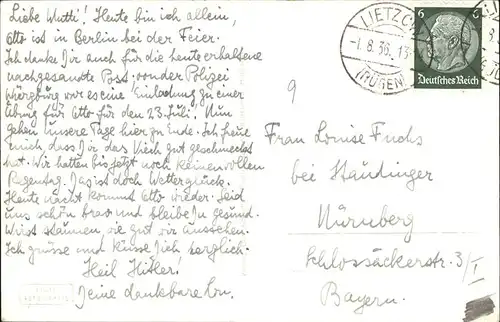 Liebe Mutti! Heute bin ich allein,
Otto ist in Berlin bei der Feier.
Ich danke Dir auch für die heute erhaltene
nachgesandte Post. von der Polizei
Würzburg war es eine Einladung zu einer
Übung für Otto für den 23. Juli. Nun
gehen unsere Tage hier zu Ende. Ich freue
mich, dass Dir das Viech gut geschmeckt
hat. Wir hatten bis jetzt noch keinen vollen
Regentag. Das ist doch Wetterglück.
Heute Nacht kommt Otto wieder. Seid
uns schön brav und bleibe Du gesund.
Wirst staunen, wie gut wir aussehen.
Ich grüsse und küsse Dich herzlich.
Heil Hitler!
Deine dankbare
LIETZOW
-1.8.36.13
(RÜGEN)
6
6
Deutsches Reich
9
Frau Louise Fuchs
bei Staudinger
Nürnberg
Schlossäckerstr. 3/I
Bayern.